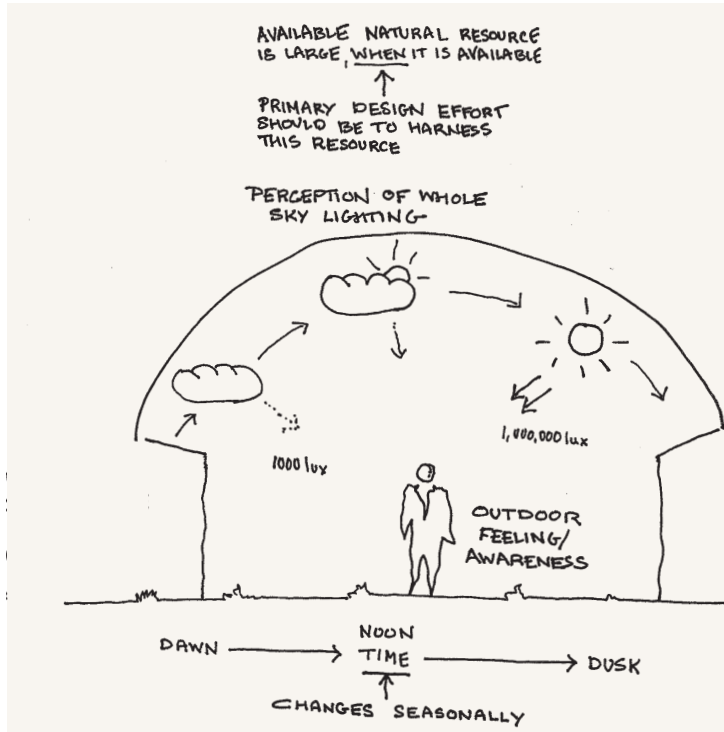 AVAILABLE NATURAL RESOURCE
IS LARGE, WHEN IT IS AVAILABLE
PRIMARY DESIGN EFFORT
SHOULD BE TO HARNESS
THIS RESOURCE
PERCEPTION OF WHOLE
SKY LIGHTING
1000 lux
1,000,000 lux
OUTDOOR
FEELING/
AWARENESS
DAWN
NOON
TIME
DUSK
CHANGES SEASONALLY